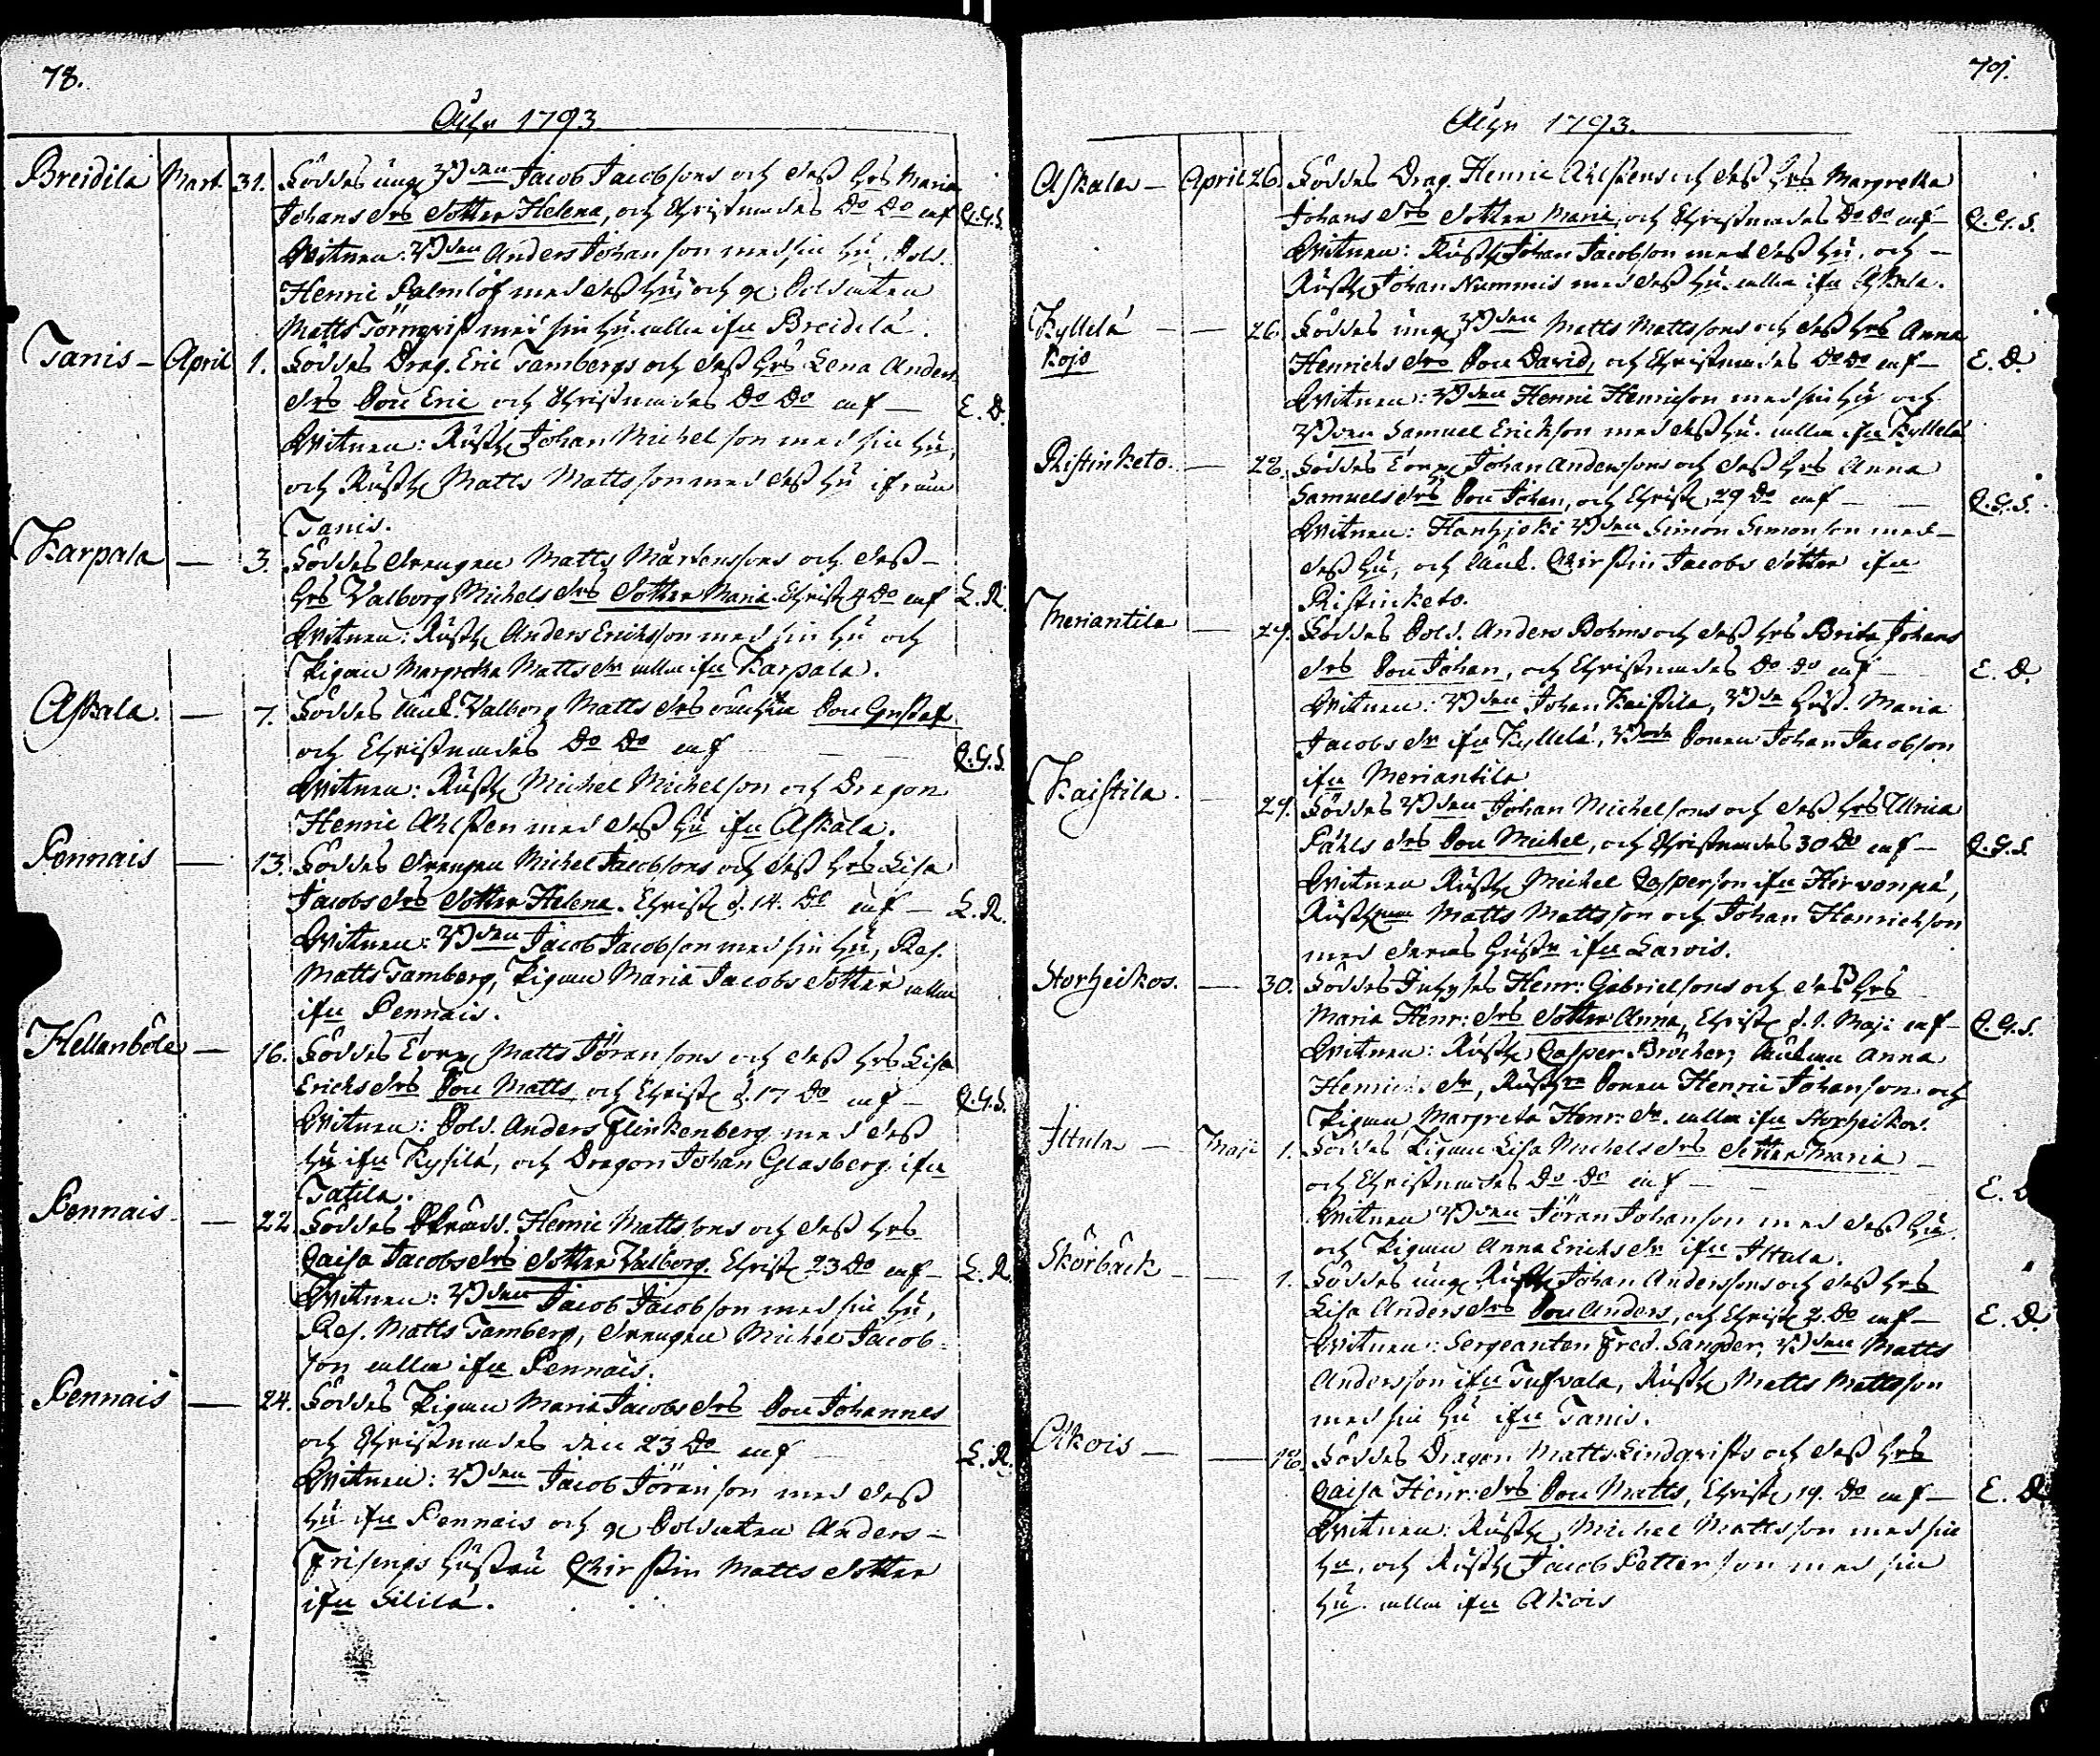 78.
Åhr 1793
Breidila Mart. 31. Föddes ung Bden Jacob Jacobsons och dess Hrs Maria
Johans drs dotter Helena, och Christnades Do Do af C.G.S.
Witnen: Bden Anders Johansson med sin Hu, Sold.
Henric Palmlöf med dess Hu, och Soldaten
Matts Törnqvist med sin Hu. alla ifrn Breidilä.
Tanis - April 1. Föddes Drag. Eric Tambergs och dess Hrs Lena Anders
drs Son Eric och Christnades Do Do af — E. D.
Witnen: Rusth Johan Michelson med sin Hu,
och Rusth Matts Mattsson med dess Hu ifrån
Tanis.
Karpala — 3. Föddes drengen Matts Mårtenssons och dess -
Hrs Valborg Michels drs dotter Maria. Christ 4 Do af L. R.
Witnen: Rusth Anders Ericksson med sin Hu och
Pigan Margretha Matts dr alla ifrn Karpala.
Askala. — 7. Föddes Valborg Matts drs oächta Son Gustaf
och Christnades Do Do af C.G.S.
Witnen: Rusth Michel Michelson och Dragon
Henric Ahlsten med dess Hu ifrn Askala.
Pennais — 13. Föddes drengen Michel Jacobsons och dess Hrs Lisa
Jacobs drs dotter Helena. Christ d. 14. Do af — L. R.
Witnen: Bden Jacob Jacobson med sin Hu, Res.
Matts Tamberg, Pigan Maria Jacobs dotter alla
ifrn Pennais.
Hellanböle — 16. Föddes Torp Matts Jöransons och dess Hrs Lisa
Ericks drs Son Matts, och Christ d. 17 Do af — C.G.S.
Witnen: Sold. Anders Flinkenberg med dess
Hu ifrn Kysilä, och Dragon Johan Glasberg ifrn
Tatila.
Pennais — 22. Föddes Henric Mattsons och dess Hrs
Caisa Jacobs drs dotter Valborg. Christ 23 Do af — L. R.
Witnen: Bden Jacob Jacobson med sin Hu,
Res. Matts Tamberg, drengen Michel Jacob-
son alla ifrn Pennais.
Pennais — 24. Föddes Pigan Maria Jacobs drs Son Johannes
och Christnades den 23 Do af L. R.
Witnen: Bden Jacob Jöranson med dess
Hu ifrn Pennais och Soldaten Anders -
Frisengs Hustru Chirstin Matts dotter
ifrn Lililä.
79.
Åhr 1793.
Askala — April 26. Föddes Drag. Henric Ahlstens och dess Hrs Margretha
Johans drs dotter Maria, och Christnades Do Do af — C.G.S.
Witnen: Rusth Johan Jacobson med dess Hu, och -
Rusth Johan Nummis med dess Hu alla ifrn Askala.
Kyllelä — — 26. Föddes ung Bden Matts Mattsons och dess Hrs Anna
Kojo Henrichs drs Son David, och Christnades Do Do af — E. D.
Witnen: Bden Henric Henricson med sin Hu och
Bden Samuel Erickson med dess Hu. alla ifrn Kyllelä
Ristinketo. — 28. Föddes Torp Johan Anderssons och dess Hrs Anna
Samuels drs Son Johan, och Christ 29 Do af — C.G.S.
Witnen: Hanhijoki Bden Simon Simonson med -
dess Hu, och Chirstin Jacobs dotter ifrn
Ristinketo.
Meriantila — 29. Föddes Sold. Anders Bohms och dess Hrs Brita Johans
drs Son Johan, och Christnades Do Do af — E. D.
Witnen: Bden Johan Kaistila, Bde Hust. Maria
Jacobs dr ifrn Kyllelä, Bonde Sonen Johan Jacobson
ifrn Meriantila
Kaistila. — 29. Föddes Bden Johan Michelsons och dess Hrs Ulrica
Påhls drs Son Michel, och Christnades 30 Do af — C.G.S.
Witnen Rusth Michel Casperson ifrn Hirvonpä,
Matts Mattsson och Johan Henrickson
med deras Hustr ifrn Larvis.
Storheikos. — 30. Föddes Inhyses Henr: Gabrielsons och dess Hrs
Maria Henr: drs dotter Anna, Christ d. 1. Maji af — C.G.S.
Witnen: Rusth Casper Bröcher, Anna
Henrichs dr, Sonen Henric Johanson och
Pigan Margreta Henr: dr. alla ifrn Storheikos.
Ittula — Maji 1. Föddes Pigan Lisa Michels drs dotter Maria -
och Christnades Do Do af — E. D.
Witnen Bden Jöran Johanson med dess Hu.
och Pigan Anna Ericks dr ifrn Ittula.
Skörbäck — 1. Föddes ung Rusth Johan Anderssons och dess Hrs
Lisa Anders drs Son Anders, och Christ 2. Do af — E. D.
Witnen: Sergeanten Fred. Sangder, Bden Matts
Andersson ifrn Tufvala, Rusth Matts Mattsson
med sin Hu ifrn Tanis.
Akois — — 18. Föddes Dragon Matts Lindqvists och dess Hrs
Caisa Henr: drs Son Matts, Christ 19. Do af — E. D.
Witnen: Rusth Michel Mattsson med sin
Hu, och Rusth Jacob Petterson med sin
Hu. alla ifrn Akois